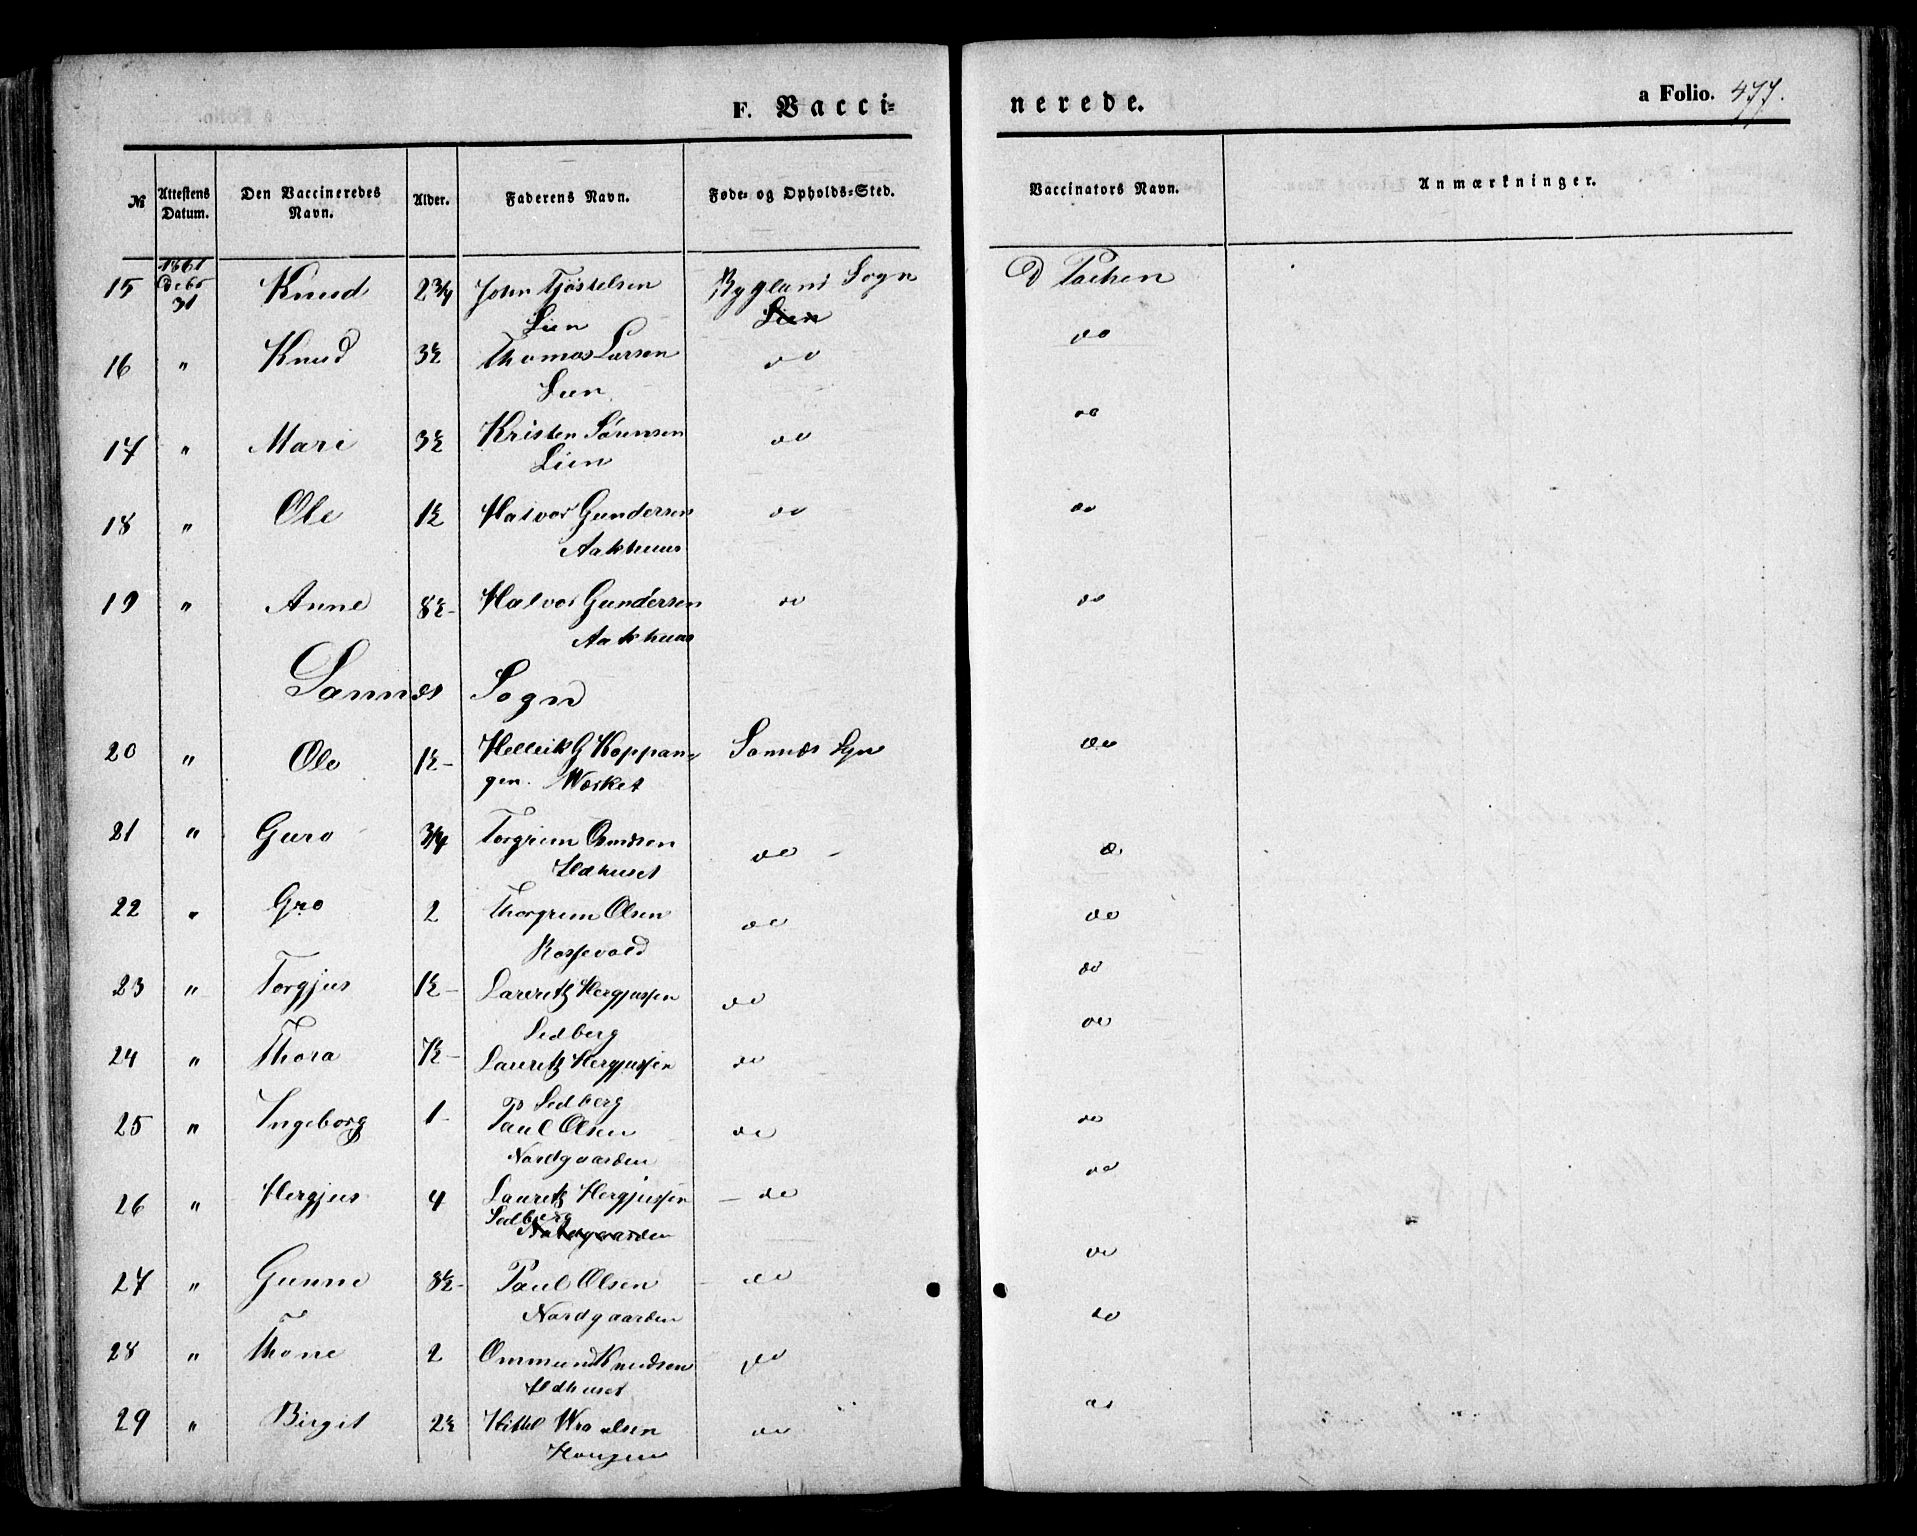 F. Vacci-
nerede.
a Folio. 477.
№ Attestens Datum. Den Vaccineredes Navn. Alder. Faderens Navn. Føde- og Opholds-Sted. Vaccinators Navn. Anmærkninger.
1861
15 31 Knud 2 3/4 John Tjöstelsen Bygland Sogn D
Lien Lien
16 " Knud 3½ Thomas Larsen do do
Lien
17 " Mari 3½ Kristen Sørensen do do
Lien
18 " Ole 1½ Halvor Gundersen do do
Aakhuus
19 " Anne 8½- Halvor Gundersen do do
Aakhuus
Sannæs Sogn
20 " Ole 1½- Helleik G Hoppan- Sannæs Sgn do
gen. Wærket
21 " Guro 3/4 Torgrim Osmdsen do - do
Ildhuset
22 " Gro 2 Thorgrim Olsen do do
Rossevold
23 " Torgjus 1½- Lauritz Hergjussen do do
Sedberg
24 " Thora 7½- Lauritz Hergjussen do do
Sedberg
25 " Ingeborg 1- Paul Olsen do do
Nordgaarden
26 " Hergjus 4 Lauritz Hergjussen - do do
Sedberg
Nordgaarden
27 " Gunne 8½- Paul Olsen - do do
Nordgaarden
28 " Thone 2 Ommund Knudsen do do
Ildhuset
29 " Birgit 2½ Kittel Wraalsen do do
Haugen